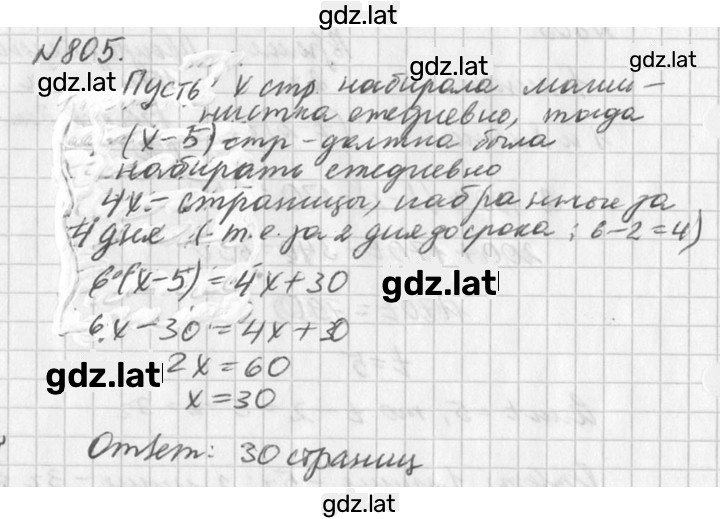 gdz.lat
№805.
gdz.lat
gdz.lat
gdz.lat
Пусть x стр. набирала маши-
нистка ежедневно, тогда
(x-5) стр - должна была
набирать ежедневно
4x - страницы, набранные за
4 дня (т.е. за 2 дня до срока; 6-2=4)
6·(x-5) = 4x+30
gdz.lat
6x-30 = 4x+30
gdz.lat
2x = 60
x = 30
Ответ: 30 страниц
gdz.lat